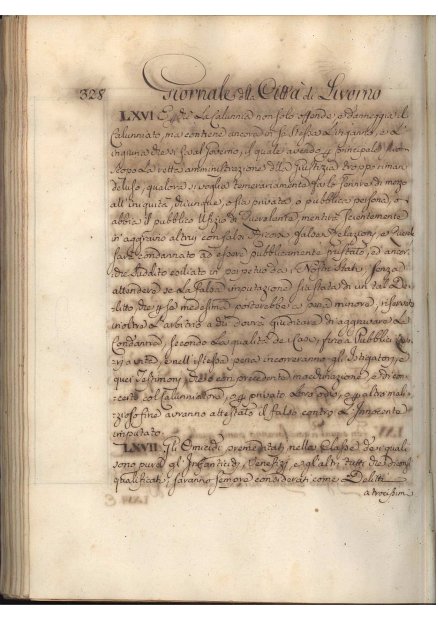 328 Giornale della Città di Livorno
LXVI E che la Calunnia non solo offende, e danneggia il
Calunniato, ma contiene ancora in se stessa l'inganno, e l'
ingiuria che si fa al Governo, il quale avendo per principale suo
scopo la retta amministrazione della Giustizia troppo riman
deluso, qualora si voglia temerariamente farlo servir di mezzo
all'iniquità, chiunque, o sia privato o pubblica persona, o
abbia il pubblico Ufizio di Querelante, mentre scientemente
in aggravio altrui con falso false Relazioni, e Quere
sarà condannato ad essere pubblicamente frustato, ed ancor
che Suddito esiliato in perpetuo da i Nostri Stati, senza
attendere se la falsa imputazione sia stata di un tal De-
litto, che per se medesimo porterebbe a pena minore, riservato
inoltre l'arbitrio a chi dovrà giudicare di aggravare la
Condanna, secondo la qualità de Casi, fino a Pubblici
a vita, e nell'istessa pena incorreranno gl'Istigatori, e
quei Testimonj che con precedente macchinazione, e con
certo col Calunniatore, o per privato loro odio, o per altro mali
zioso fine avranno attestato il falso contro l'Innocente
imputato.
LXVII Gli Omicidj premeditati nella Classe de i quali
sono pure gl'Infanticidj, Venefizj, e gl'altri tutti che
qualificati, saranno sempre considerati come Delitti
atrocissimi